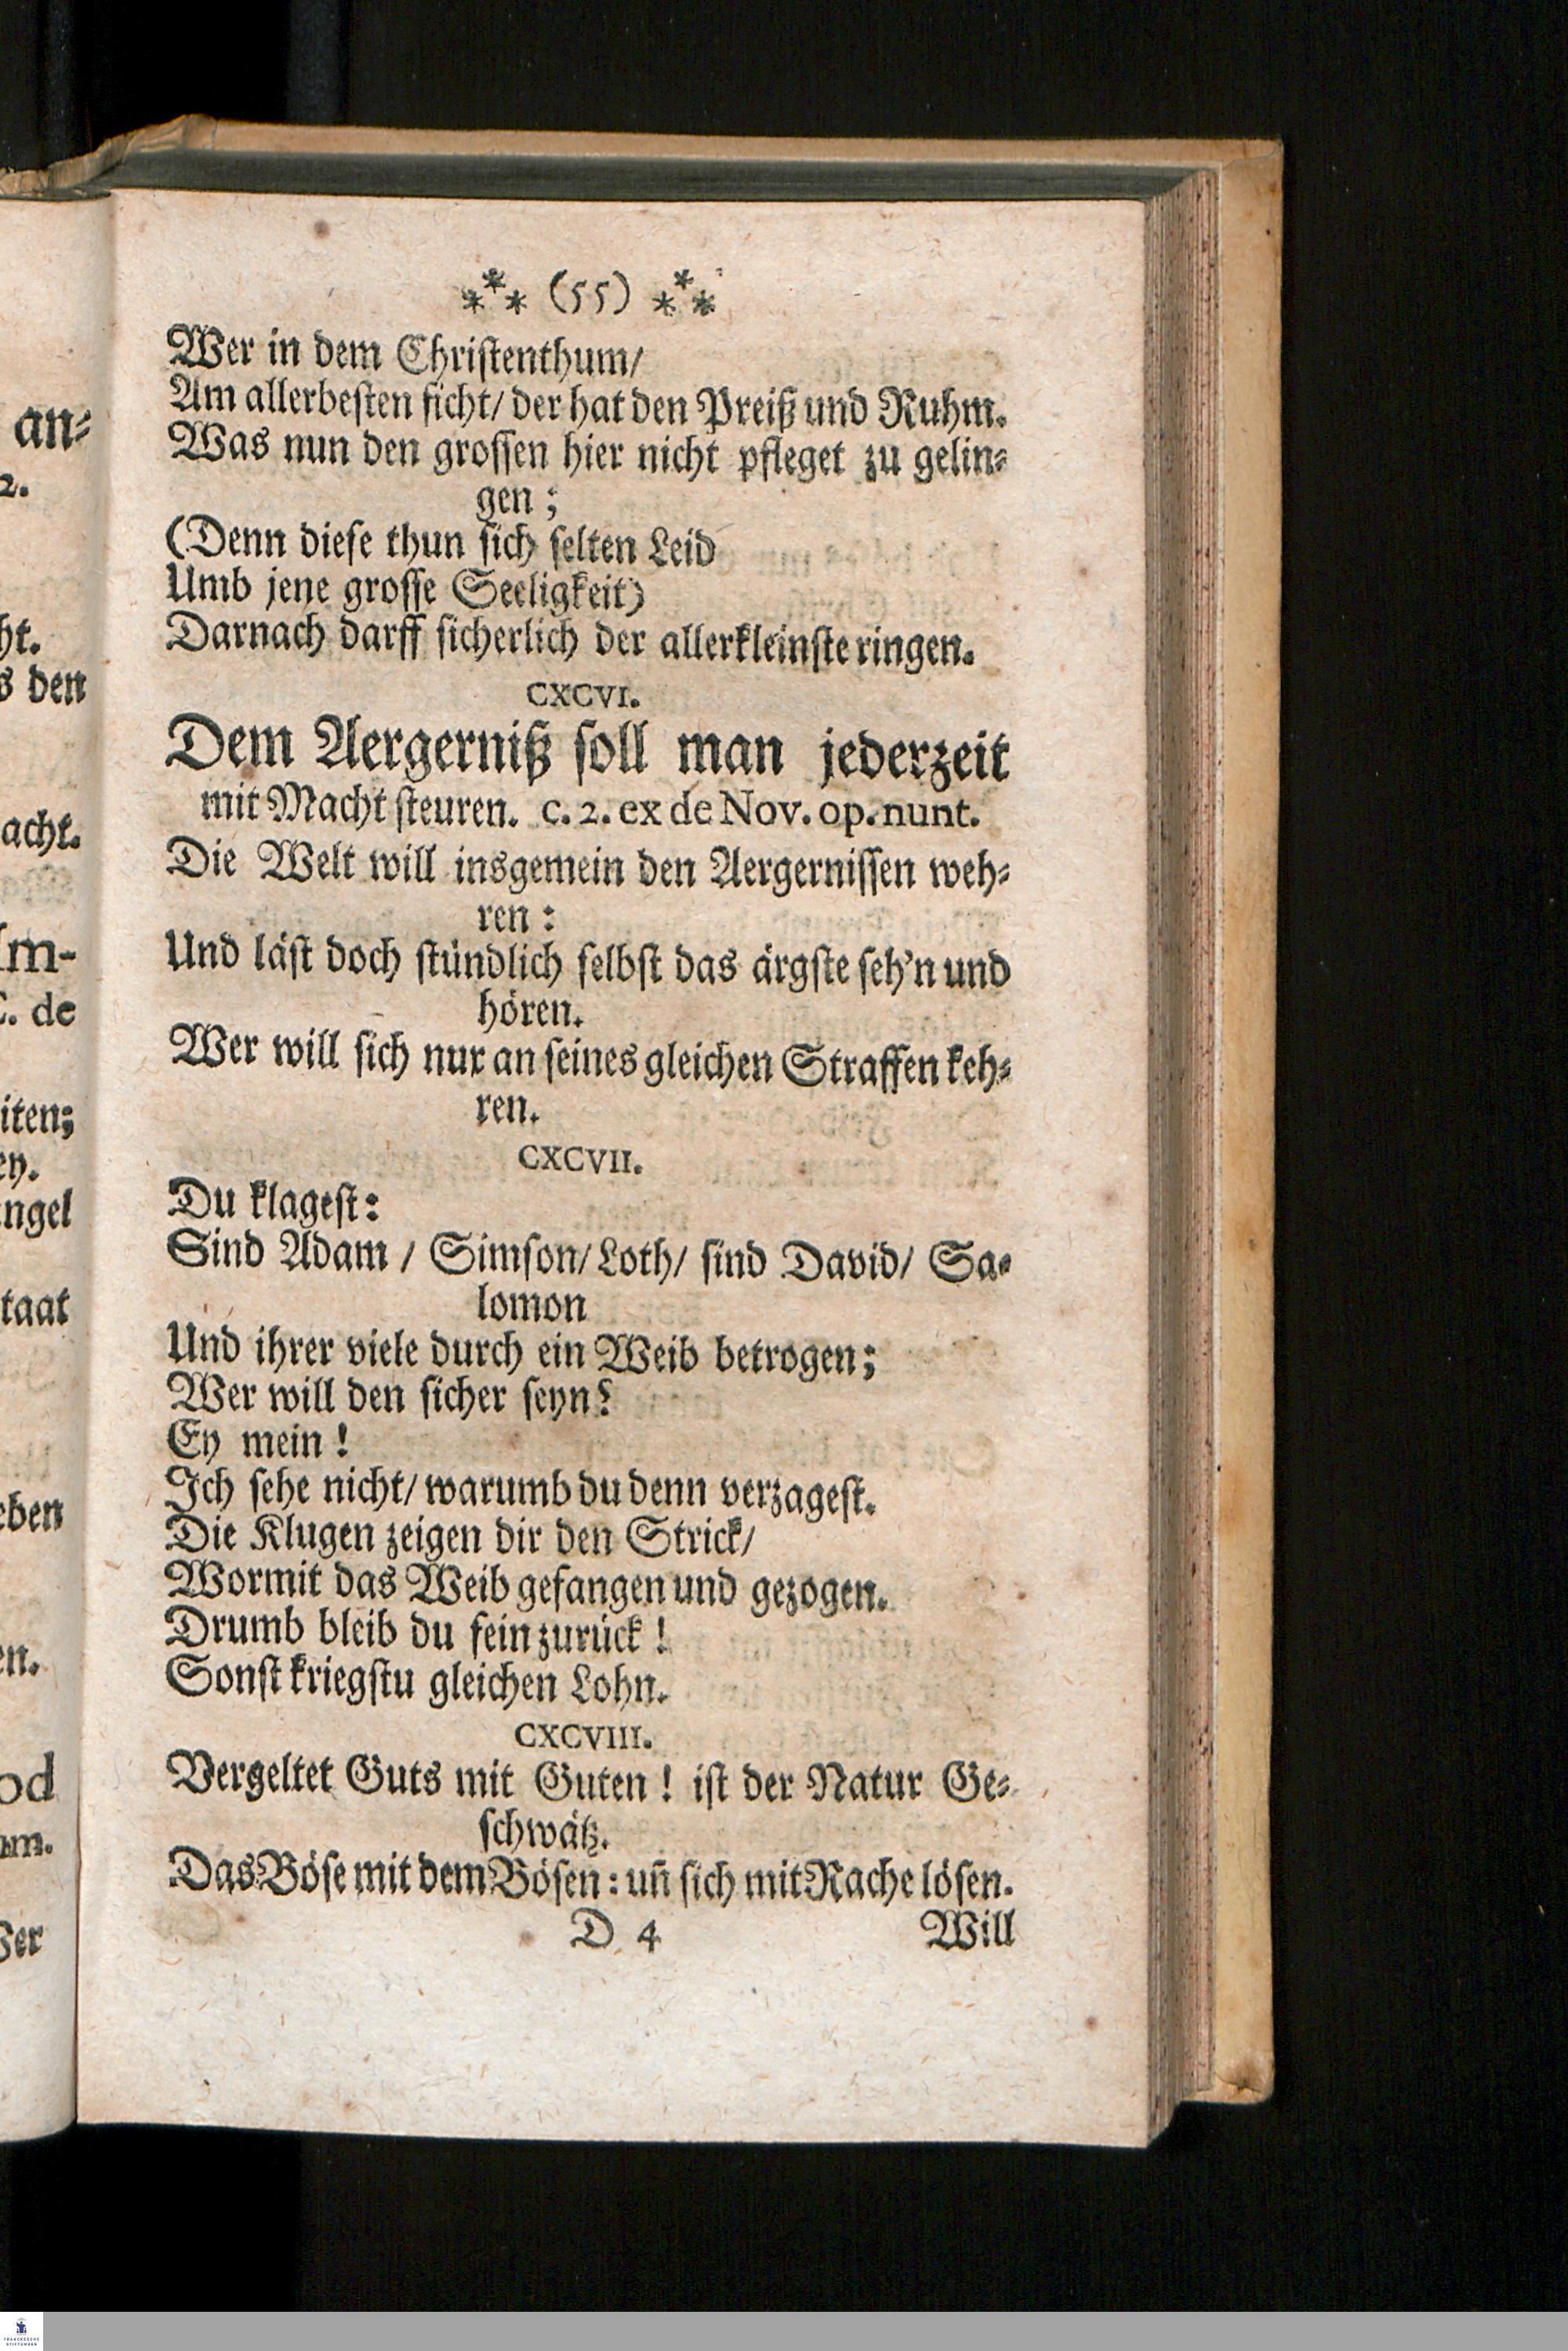 ⁂ (55) ⁂
Wer in dem Chriſtenthum/
Am allerbeſten ficht/ der hat den Preiß und Ruhm.
Was nun den groſſen hier nicht pfleget zu gelin⸗
gen;
(Denn dieſe thun ſich ſelten Leid
Umb jene groſſe Seeligkeit)
Darnach darff ſicherlich der allerkleinſte ringen.
CXCVI.
Dem Aergerniß ſoll man jederzeit
mit Macht ſteuren. c. 2. ex de Nov. op. nunt.
Die Welt will insgemein den Aergerniſſen weh⸗
ren:
Und läſt doch ſtündlich ſelbſt das ärgſte ſeh'n und
hören.
Wer will ſich nur an ſeines gleichen Straffen keh⸗
ren.
CXCVII.
Du klageſt:
Sind Adam / Simſon/ Loth/ ſind David/ Sa⸗
lomon
Und ihrer viele durch ein Weib betrogen;
Wer will den ſicher ſeyn?
Ey mein!
Ich ſehe nicht/ warumb du denn verzageſt.
Die Klugen zeigen dir den Strick/
Wormit das Weib gefangen und gezogen.
Drumb bleib du fein zurück!
Sonſt kriegſtu gleichen Lohn.
CXCVIII.
Vergeltet Guts mit Guten! iſt der Natur Ge⸗
ſchwätz.
Das Böſe mit dem Böſen: uñ ſich mit Rache löſen.
D 4 Will
an⸗
2.
ht.
s den
acht.
Im-
C. de
iten;
ey.
ngel
taat
eben
en.
od
um.
Wer
FRANCKESCHE
STIFTUNGEN